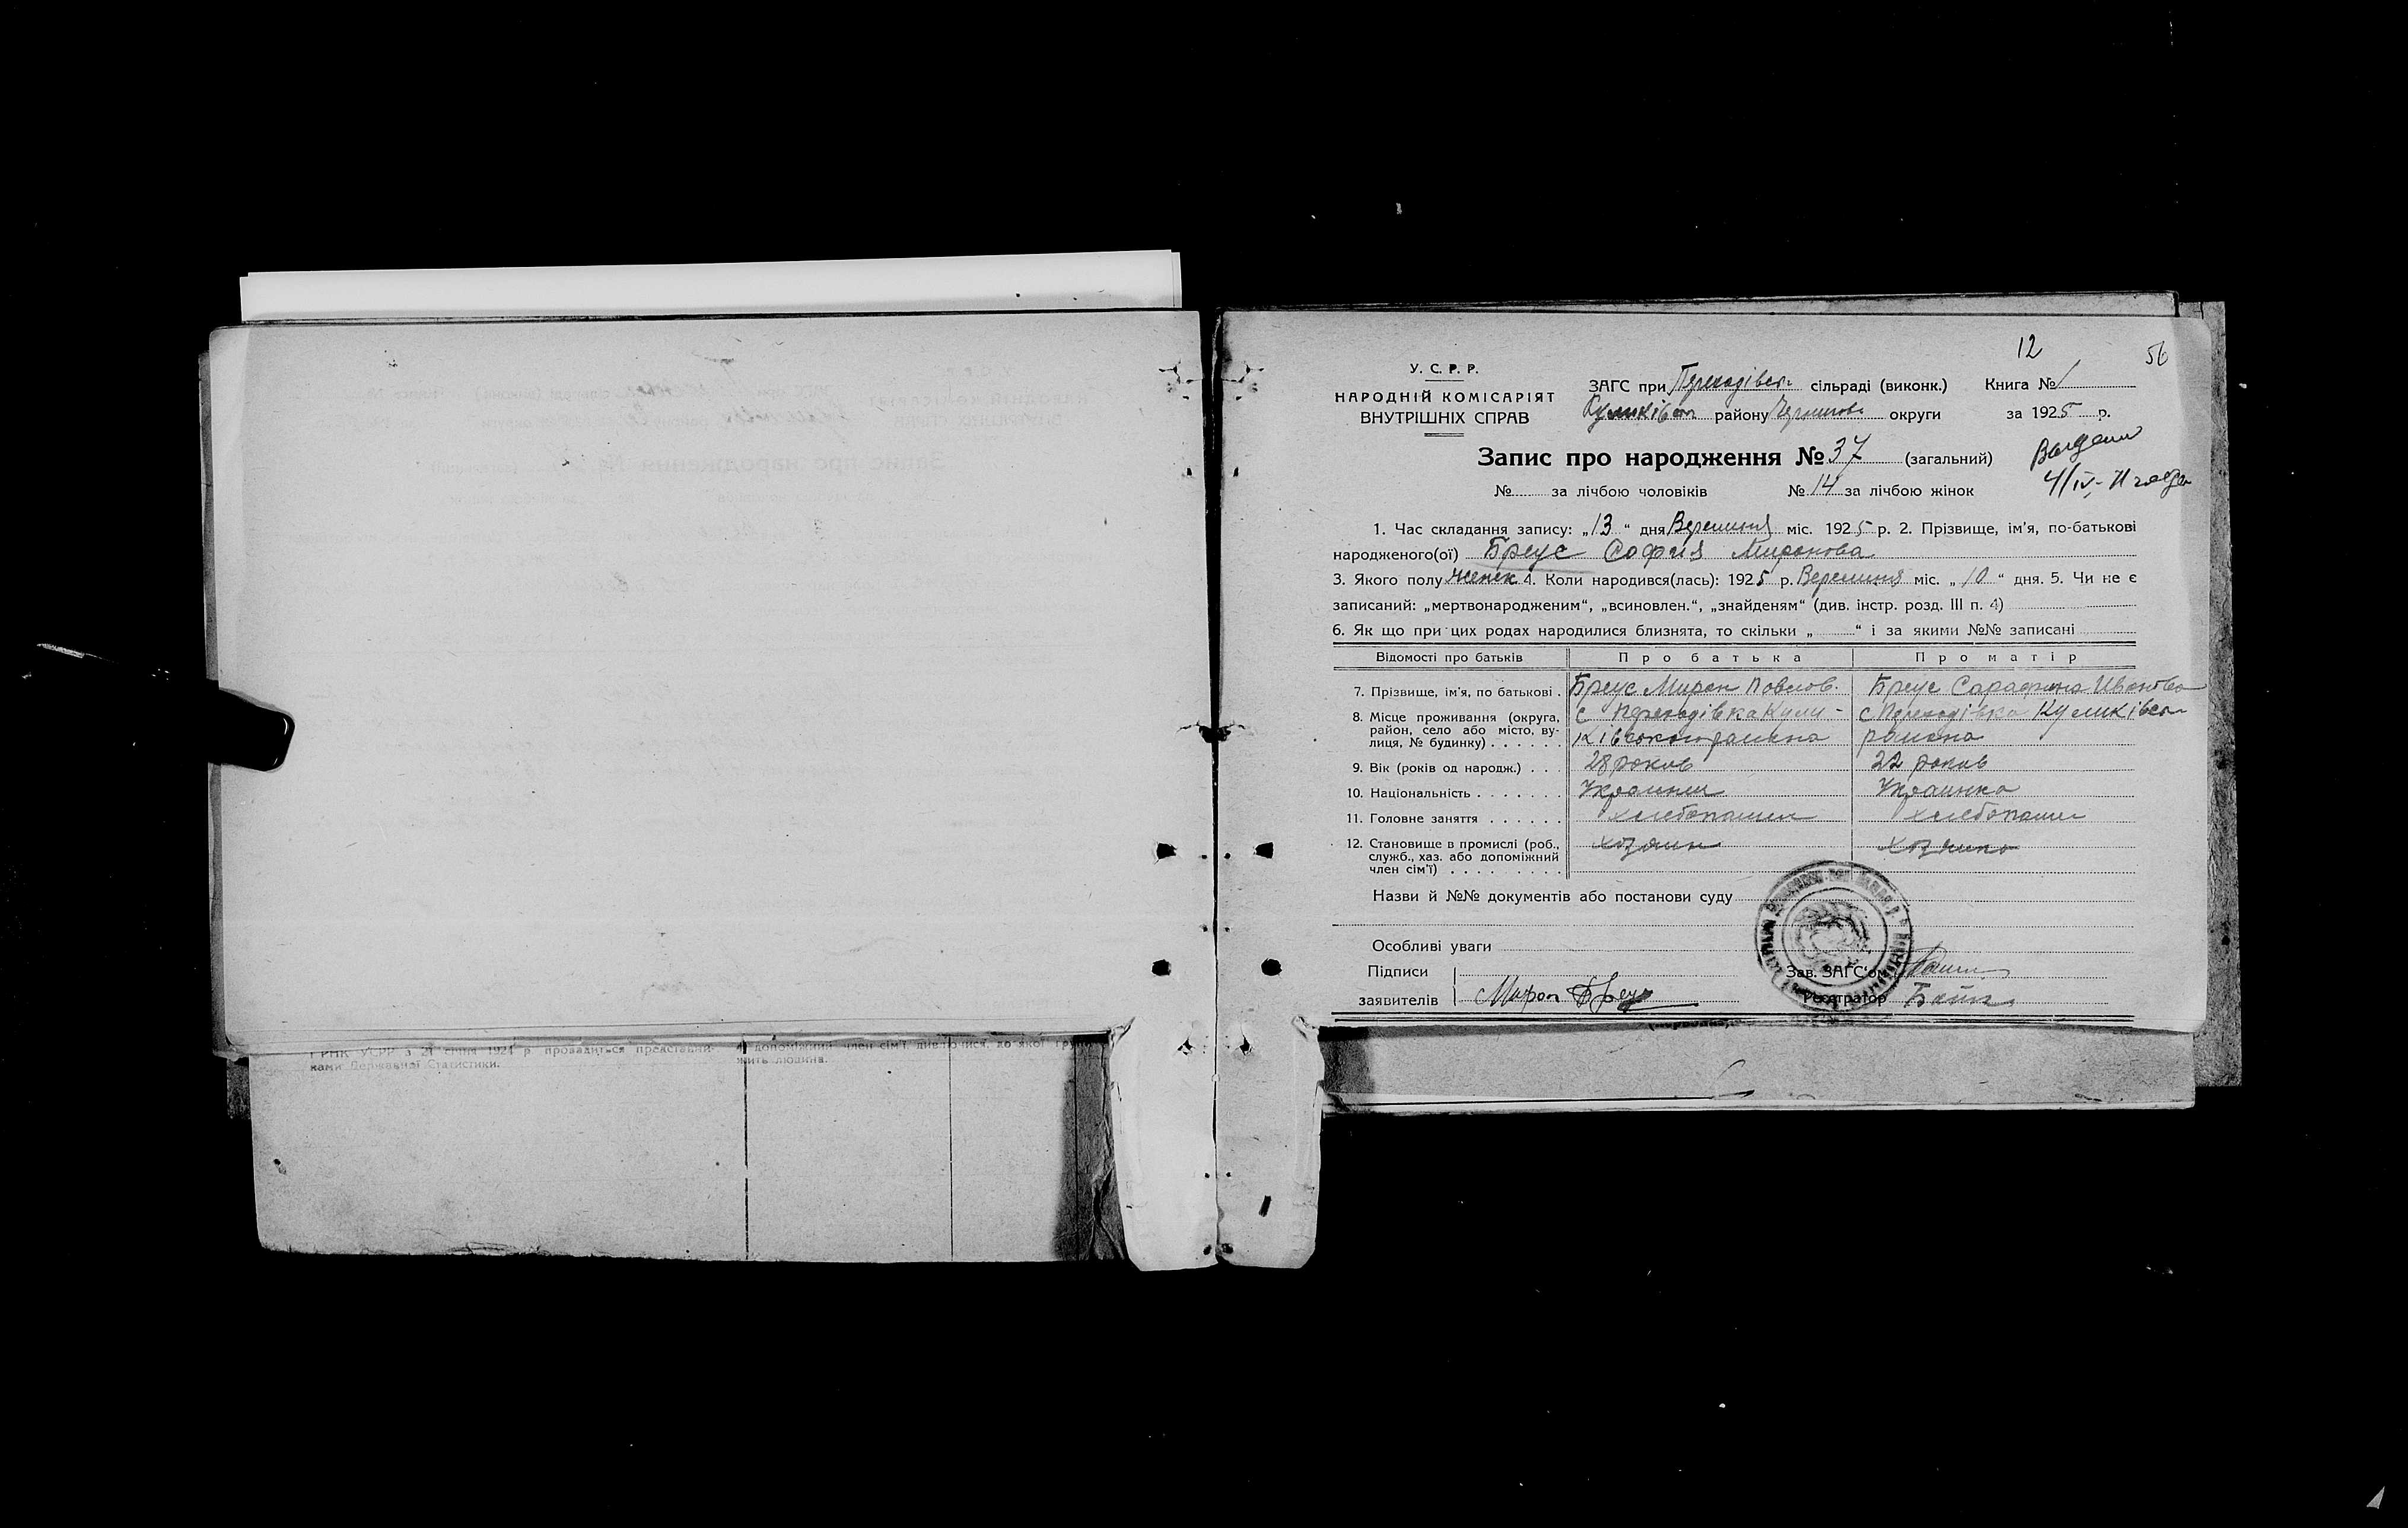 12
56
У. С. Р. Р.
НАРОДНІЙ КОМІСАРІЯТ
ВНУТРІШНІХ СПРАВ
ЗАГС при Переходівськ сільраді (виконк.) Книга № 1
Куликівськ району Чернигов округи за 1925 р.
Запис про народження № 37 (загальний)
№ за лічбою чоловіків № 14 за лічбою жінок
4/IV-
1. Час складання запису: „13“ дня Вересння міс. 1925 р. 2. Прізвище, ім’я, по-батькові
народженого(ої) Бреус София Миронова
3. Якого полу женск 4. Коли народився(лась): 1925 р. Вересння міс. „10“ дня. 5. Чи не є
записаний: „мертвонародженим“, „всиновлен.“, „знайденям“ (див. інстр. розд. III п. 4)
6. Як що при цих родах народилися близнята, то скільки „ “ і за якими №№ записані
Відомості про батьків Про батька Про матір
7. Прізвище, ім’я, по батькові . Бреус Мирон Повлов. Бреус Сарафина Ивановна
8. Місце проживання (округа, район, село або місто, вулиця, № будинку) . . . . . . с Переходівка Кули-
ківського района с Переходівка Куликівськ
района
9. Вік (років од народж.) . . . 28 роков 22 роков
10. Національність . . . . . . . Украинец Украинка
11. Головне заняття . . . . . . хлебопашец хлебопашец
12. Становище в промислі (роб., служб., хаз. або допоміжний член сім’ї) . . . . . . . . . хозяин хозяика
Назви й №№ документів або постанови суду
Особливі уваги
Підписи
заявителів Мирон Бреус
Зав. ЗАГС‘ом
Реєстратор
РНК УСРР з 21 січня 1924 р провадиться представни-
ками Державної Статистики.
допоміжний член сім’ї, дивлючися, до якої
жить людина.